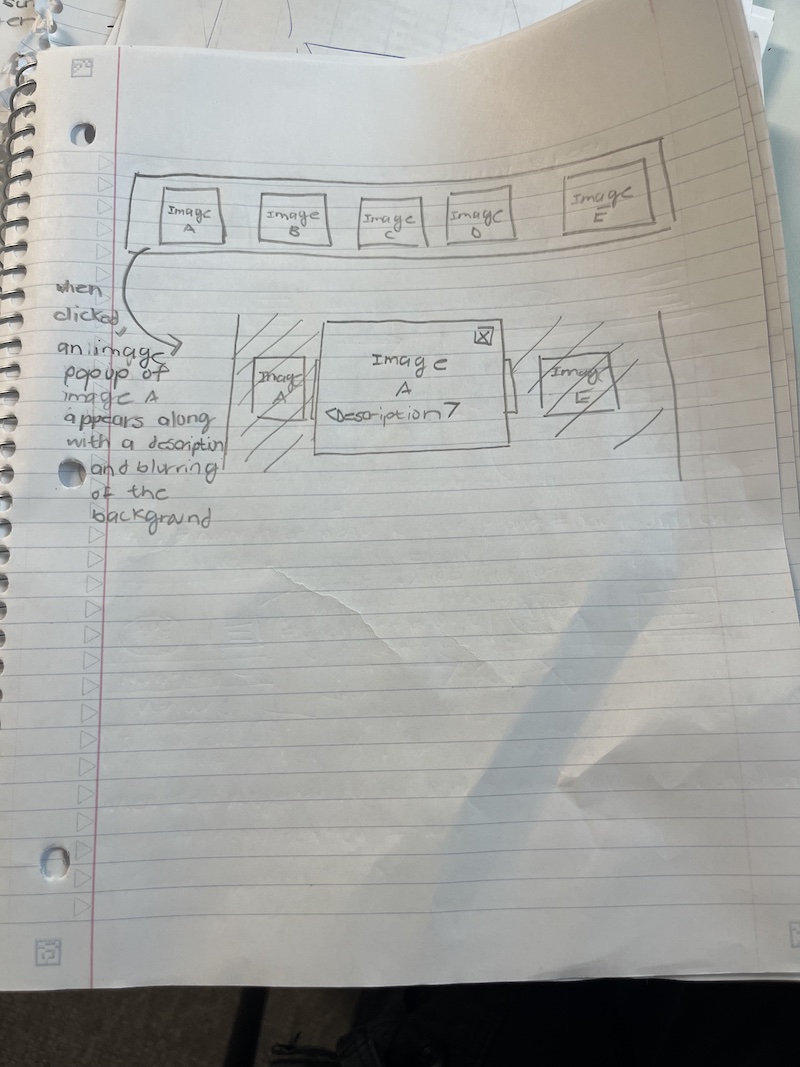 Image
A
Image
B
Image
C
Image
D
Image
E
when
clicked,
an image
popup of
image A
appears along
with a description
and blurring
of the
background
Image
A
X
Image
A
<Description>
Image
E